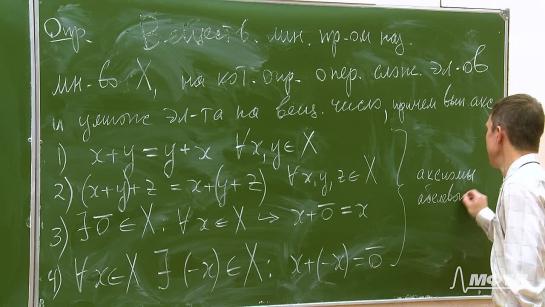 Опр. Веществ. лин. пр-ом наз.
мн-во X, на кот. опр. опер. слож. эл-ов
и умнож. эл-та на вещ. число, причем вып. акс
1) x+y = y+x ∀x,y∈X
2) (x+y)+z = x+(y+z) ∀x,y,z∈X
3) ∃ō∈X: ∀x∈X ↪ x+ō=x
4) ∀x∈X ∃(-x)∈X: x+(-x)=ō
аксиомы
абелевы
МФТИ